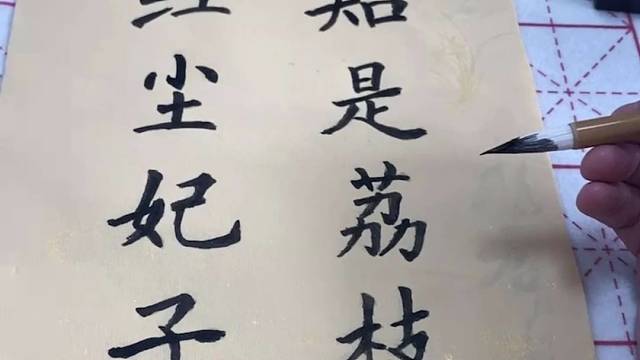 红尘妃子
知是荔枝